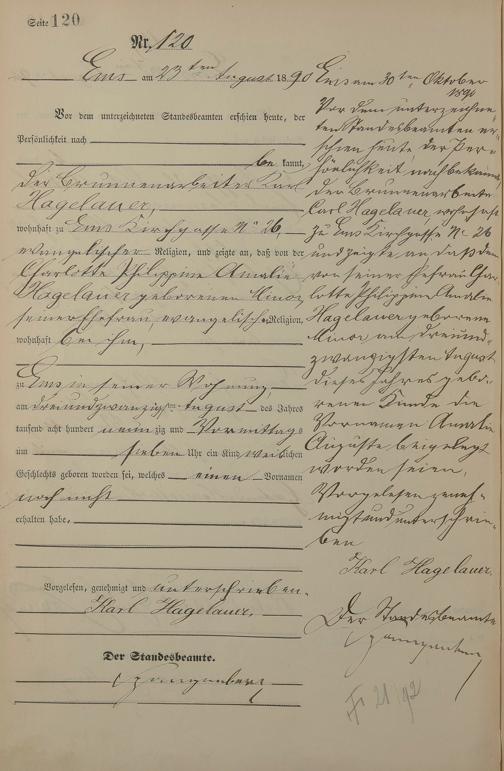 Seite 120
Nr. 120
Ems am 23ten August 1890
Vor dem unterzeichneten Standesbeamten erschien heute, der
Persönlichkeit nach
bekannt,
der Brunnenarbeiter Karl
Hagelauer,
wohnhaft zu Ems Kirchgasse No 26,
evangelischer Religion, und zeigte an, daß von der
Charlotte Philippine Amalie
Hagelauer geborenen
seiner Ehefrau, evangelischer Religion,
wohnhaft bei ihm,
zu Ems in seiner Wohnung,
am dreiundzwanzigsten August des Jahres
tausend acht hundert neunzig und Vormittags
um sieben Uhr ein Kind weiblichen
Geschlechts geboren worden sei, welches einen Vornamen
noch nicht
erhalten habe.
Vorgelesen, genehmigt und unterschrieben.
Karl Hagelauer.
Der Standesbeamte.
Ems am 30ten Oktober
1890
Vor dem unterzeichne-
ten Standesbeamten er-
schien heute, der Per-
sönlichkeit nach bekannt
der Brunnenarbeiter
Carl Hagelauer, wohnhaft
zu Ems Kirchgasse No 26
und zeigte an, daß dem
von seiner Ehefrau Char
lotte Philippine Amalie
Hagelauer geborene
am dreiund-
zwanzigsten August
dieses Jahres gebo-
renen Kinde die
Vornamen Amalie
Auguste beigelegt
worden seien.
Vorgelesen geneh-
migt und unterschrie-
ben
Karl Hagelauer.
Der Standesbeamte